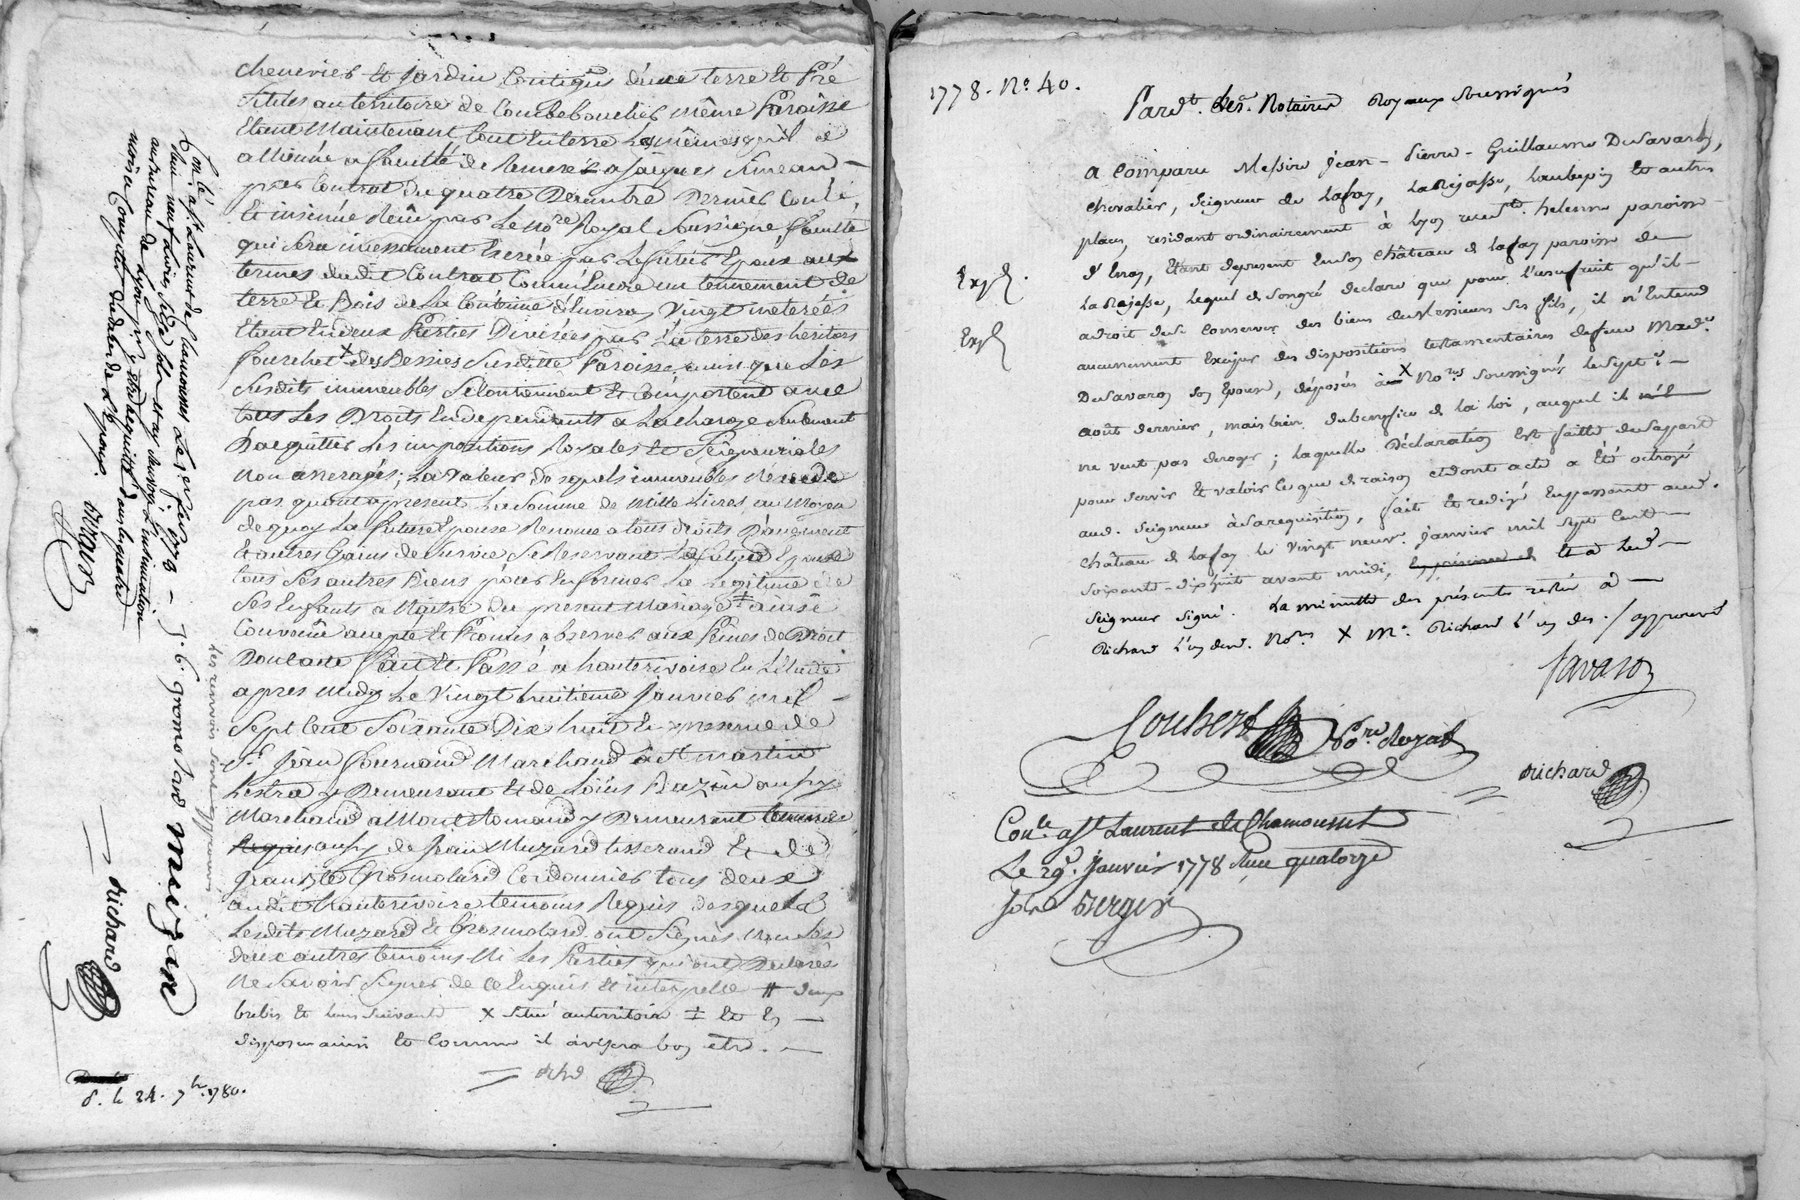 chenevier et Jardin Contigus d'une terre et Pré
Situés au territoire de Combebouchet même Paroisse
Etant Maintenant tout en terre Les mêmes qu'il a
alliéné a faculté de Remeré a Jacques Simean
par Contrat du quatre Decembre Dernier Controlé,
et insinué Reçu par Le nore Royal Soussigné, faculté
qui sera incessament Exercée par Le futur Epoux aux
termes dudit Contrat Comm' Encore un tennement de
terre et Bois de La Contenue d'Environ Vingt meterées
Etant En deux Parties Divisées par La terre des héritiers
fourchet X des Dessies Susditte Paroisse ainsi que Les
Susdits immeubles Se Contiennent et Comportent avec
tous Les Droits En dependants a La charge Seulement
D'acquitter Les impositions Royales et Seigneuriales
Non arreragés; La Valeur desquels immeubles N'excede
pas quant apresent La Somme de Mille Livres, au Moyen
de quoy La future Epouse Renonce a tous droits D'augment
Et autres Gains de Survie Se Reservant Le futur Epoux
tous Ses autres Biens pour En former La Legitime de
Ses Enfants a Naitre du present Mariage ‡ ainsi
Convenu accepté et Promis observer aux Peines de Droit
Dont acte Fait et Passé a hauterivoire En L'Etude
apres midy Le Vingt huitieme Janvier mil
Sept Cent Soixante Dix huit En presence de
Sr. Jean Gournand Marchand à St martin
Lestra y Demeurant et de Loüis Bazin aussy
Marchand a Mont Romand y Demeurant temoins
Requis aussy de Jean Muzard tisserand et de
Grosmolard Cordonnier tous deux
audit hauterivoire temoins Requis desquels
Lesdits Muzard et Grosmolard ont Signés Non Les
deux autres temoins Ni Les Parties qui ont Declarés
Ne Savoir Signer de ce Enquis et interpellé # deux
brebis et leurs suivants X Situé au territoire ‡ Et En
disposer ainsi et Comme il avisera bon etre.
Rhd
Con.le a St Laurent de Chamousset Le 9 fevr 1778
J. G gromolard
meizare
Les renvois sont approuvés
Richard
d. le 24. 7bre. 1780.
1778. No. 40.
Pardt. Les. Notaires Royaux Soussignés
a Comparu Messire Jean-Pierre-Guillaume De Savaron,
Chevalier, Seigneur de Lafay, La Rajasse, Laubepin et autres
places, residant ordinairement à Lyon rue Ste. helenne paroisse
d'Enay, Etant depresent En Son château de Lafay paroisse de
La Rajasse, Lequel de Songré declare que pour l'usufruit qu'il
a droit de Conserver des biens de Messieurs Ses fils, il n'Entend
aucunement Exciper des dispositions testamentaires de feue Made.
De Savaron Son Epouse, déposées à X Nores Soussignés Le Sept
août dernier, mais bien du benefice de la Loi, auquel il
ne veut pas deroger; laquelle Déclaration Est faitte de Sa part
pour Servir et valoir Ce que de raison et dont acte a Eté octroyé
aud. Seigneur à Sa requisition, fait et redigé En passant aud.
Château de Lafay le Vingt neuf. Janvier mil Sept Cent
Soixante-dix huit avant midi, En presence de Et a Led
Seigneur Signé. La minutte des présentes restée à
Richard l'un desd. Nores X Me. Richard l'un des / approuvé
Exp.d
Exp.d
Savaron
Coubert Nore Royal
Richard
Conle. a St Laurent de Chamousset
Le 29. Janvier 1778 Reçu quatorze
sols Berger